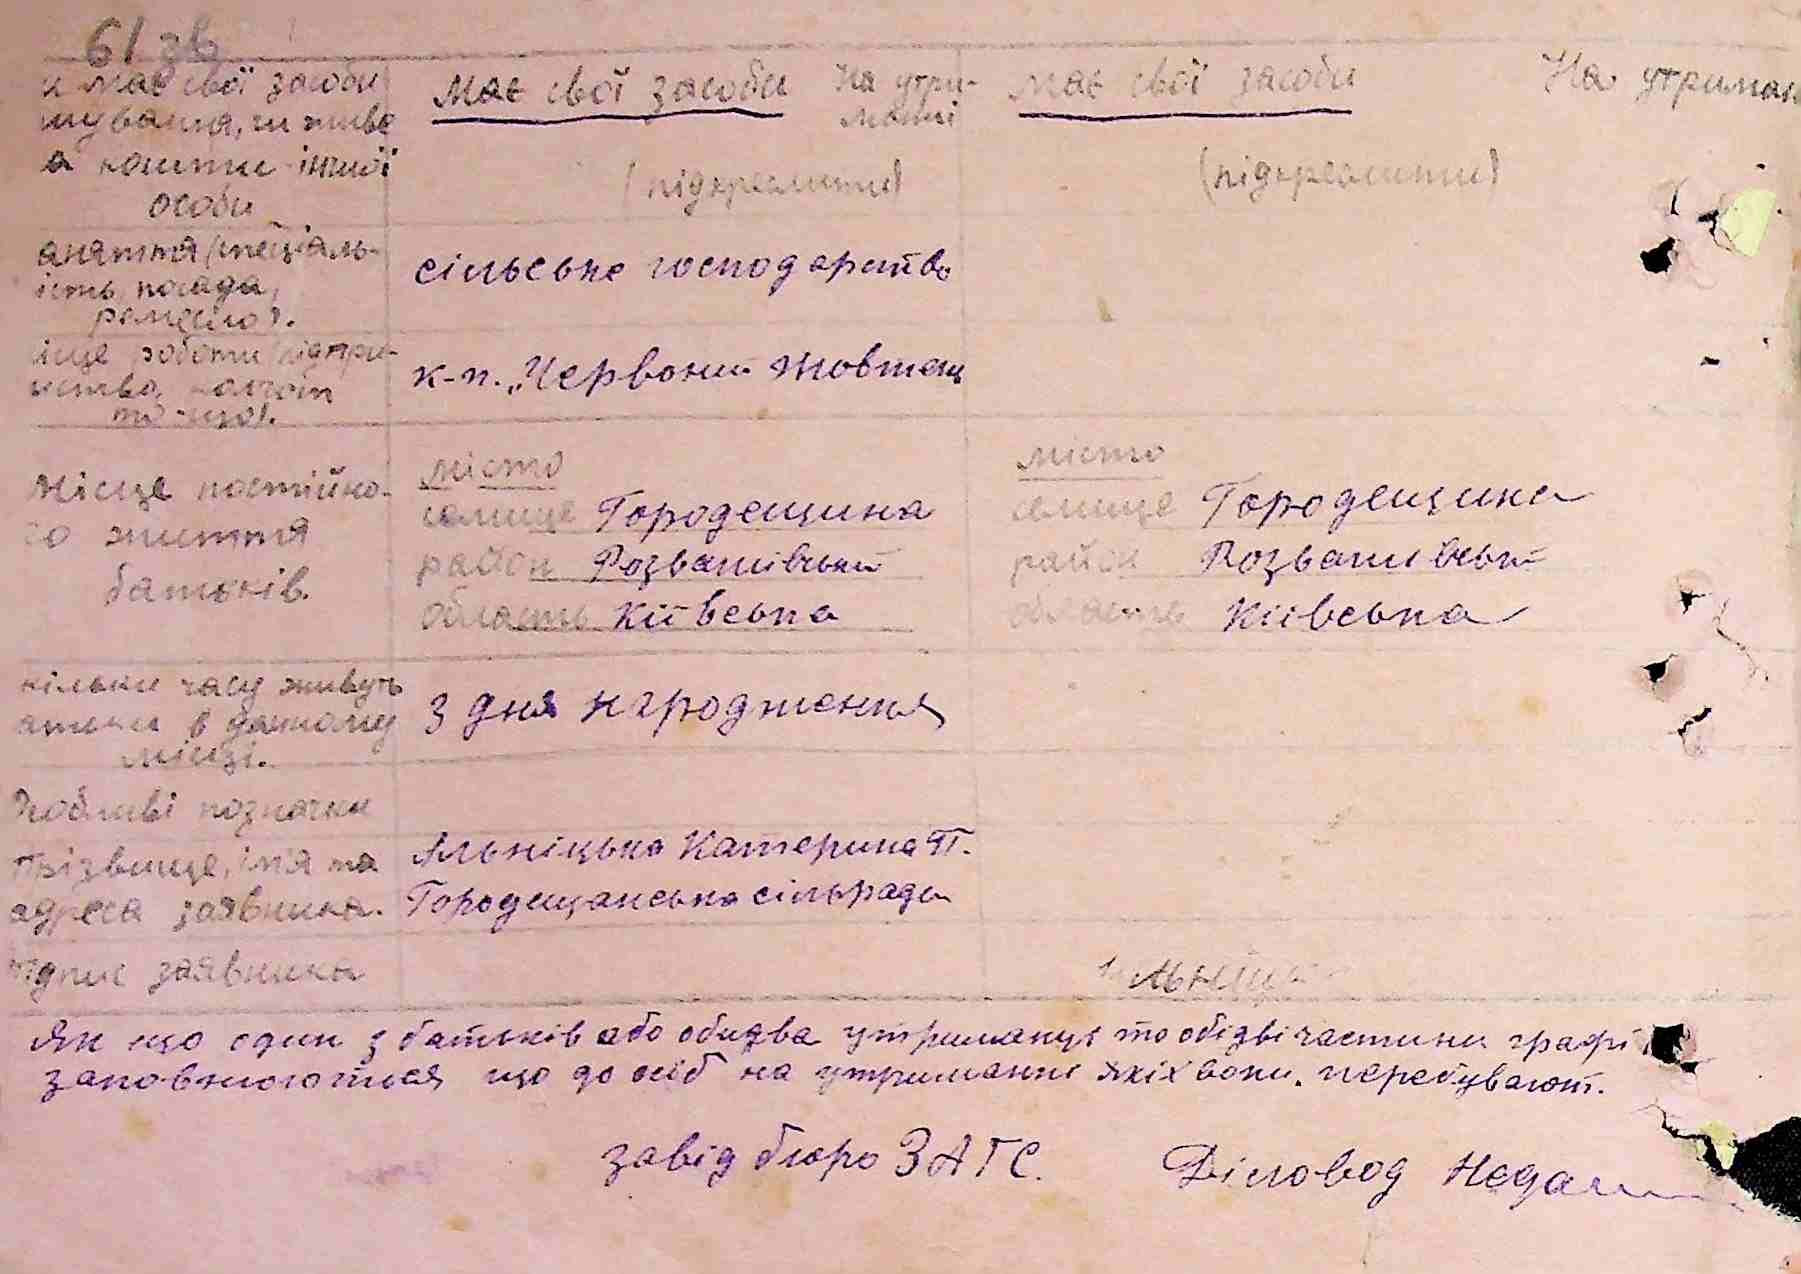 61 зв
и має свої засоби
нування, чи живе
а кошти іншої
особи
Має свої засоби На утри-
манні
(підкреслити)
має свої засоби На утриман
(підкреслити)
аняття (спеціаль-
ість, посада,
ремесло).
сільське господарство
ісце роботи (підпри-
мство, колгосп
то-що).
к-п. „Червоний жовтень
Місце постійно-
го життя
батьків.
місто
селище Городещина
район Розважівський
область Київська
місто
селище Городещина
район Розважівський
область Київська
кільки часу живуть
атьки в данному
місці.
з дня нгродження
собливі позначки
Прізвище, ім'я та
адреса заявника.
Яльніцька Катерина П.
Городещанська сільрада
ідпис заявника
льніцьк
Як що один з батьків або обидва утриманці то обідві частини графі
заповнюються що до осіб на утриманні якіх вони перебувають.
завід бюро ЗАГС. Діловод Неда